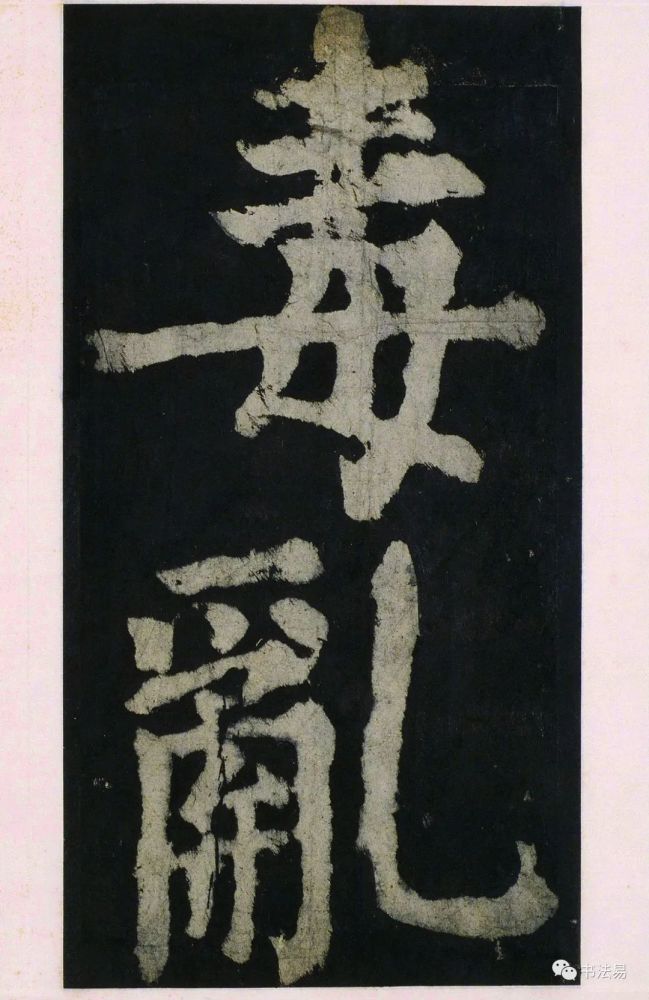 毒
亂
书法易